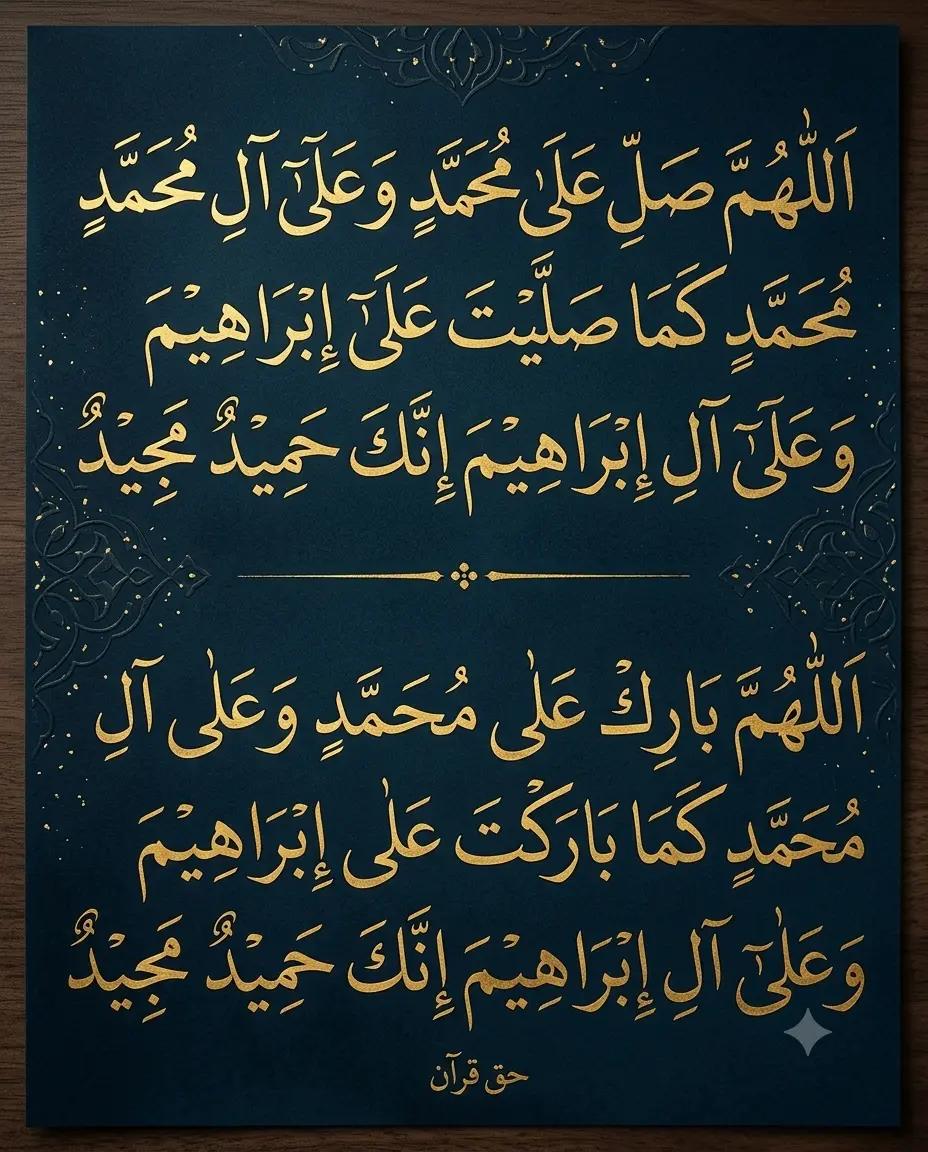 اَللّٰهُمَّ صَلِّ عَلَىٰ مُحَمَّدٍ وَعَلَىٰٓ آلِ مُحَمَّدٍ
مُحَمَّدٍ كَمَا صَلَّيْتَ عَلَىٰٓ إِبْرَاهِيْمَ
وَعَلَىٰٓ آلِ إِبْرَاهِيْمَ إِنَّكَ حَمِيْدٌ مَجِيْدٌ
اَللّٰهُمَّ بَارِكْ عَلٰى مُحَمَّدٍ وَعَلٰى آلِ
مُحَمَّدٍ كَمَا بَارَكْتَ عَلٰى إِبْرَاهِيْمَ
وَعَلىٰٓ آلِ إِبْرَاهِيْمَ إِنَّكَ حَمِيْدٌ مَجِيْدٌ
حق قرآن